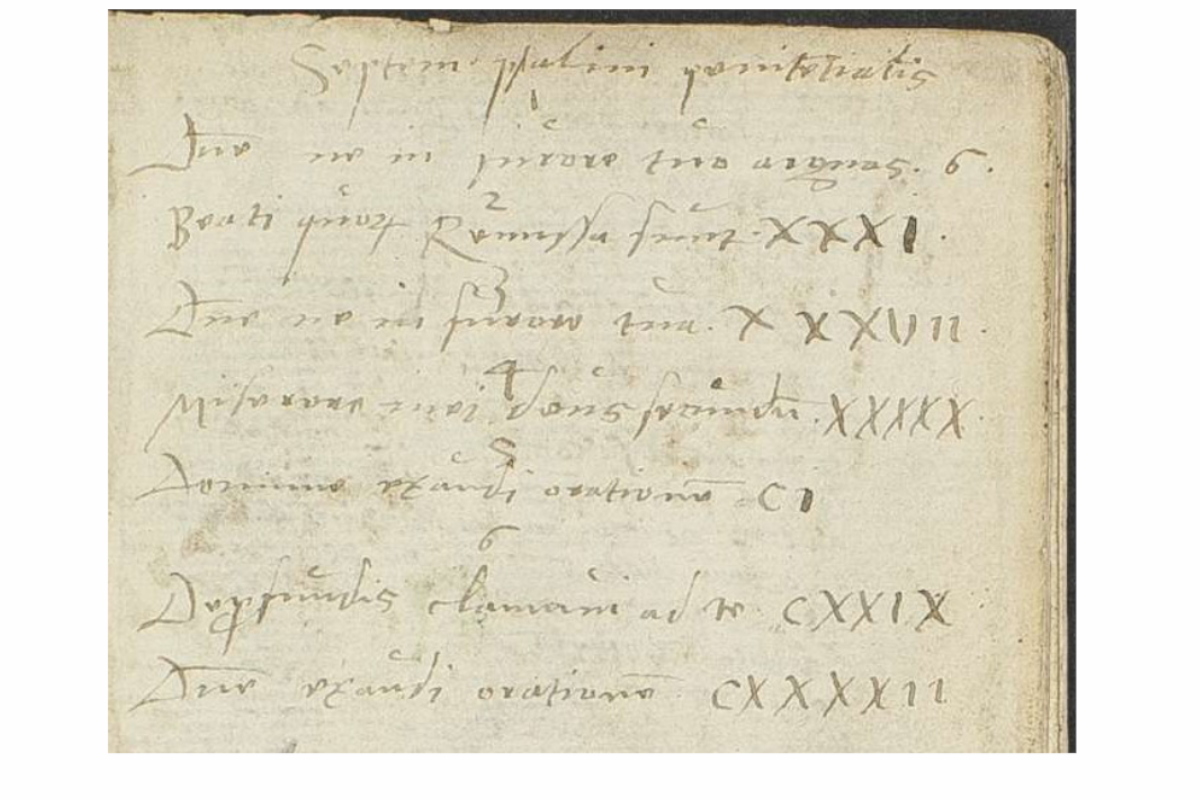 Septem psalmi penitētialis
1
Dñe ne in furore tuo arguas . 6 .
2
Beati quorū Remisse sunt . XXXI .
3
Dñe ne in furore tuo . XXXVII .
4
Miserere mei deus secundū . XXXXX .
5
Domine exaudi orationē CI
6
De profundis clamavi ad te . CXXIX
Dñe exaudi orationē . CXXXXII